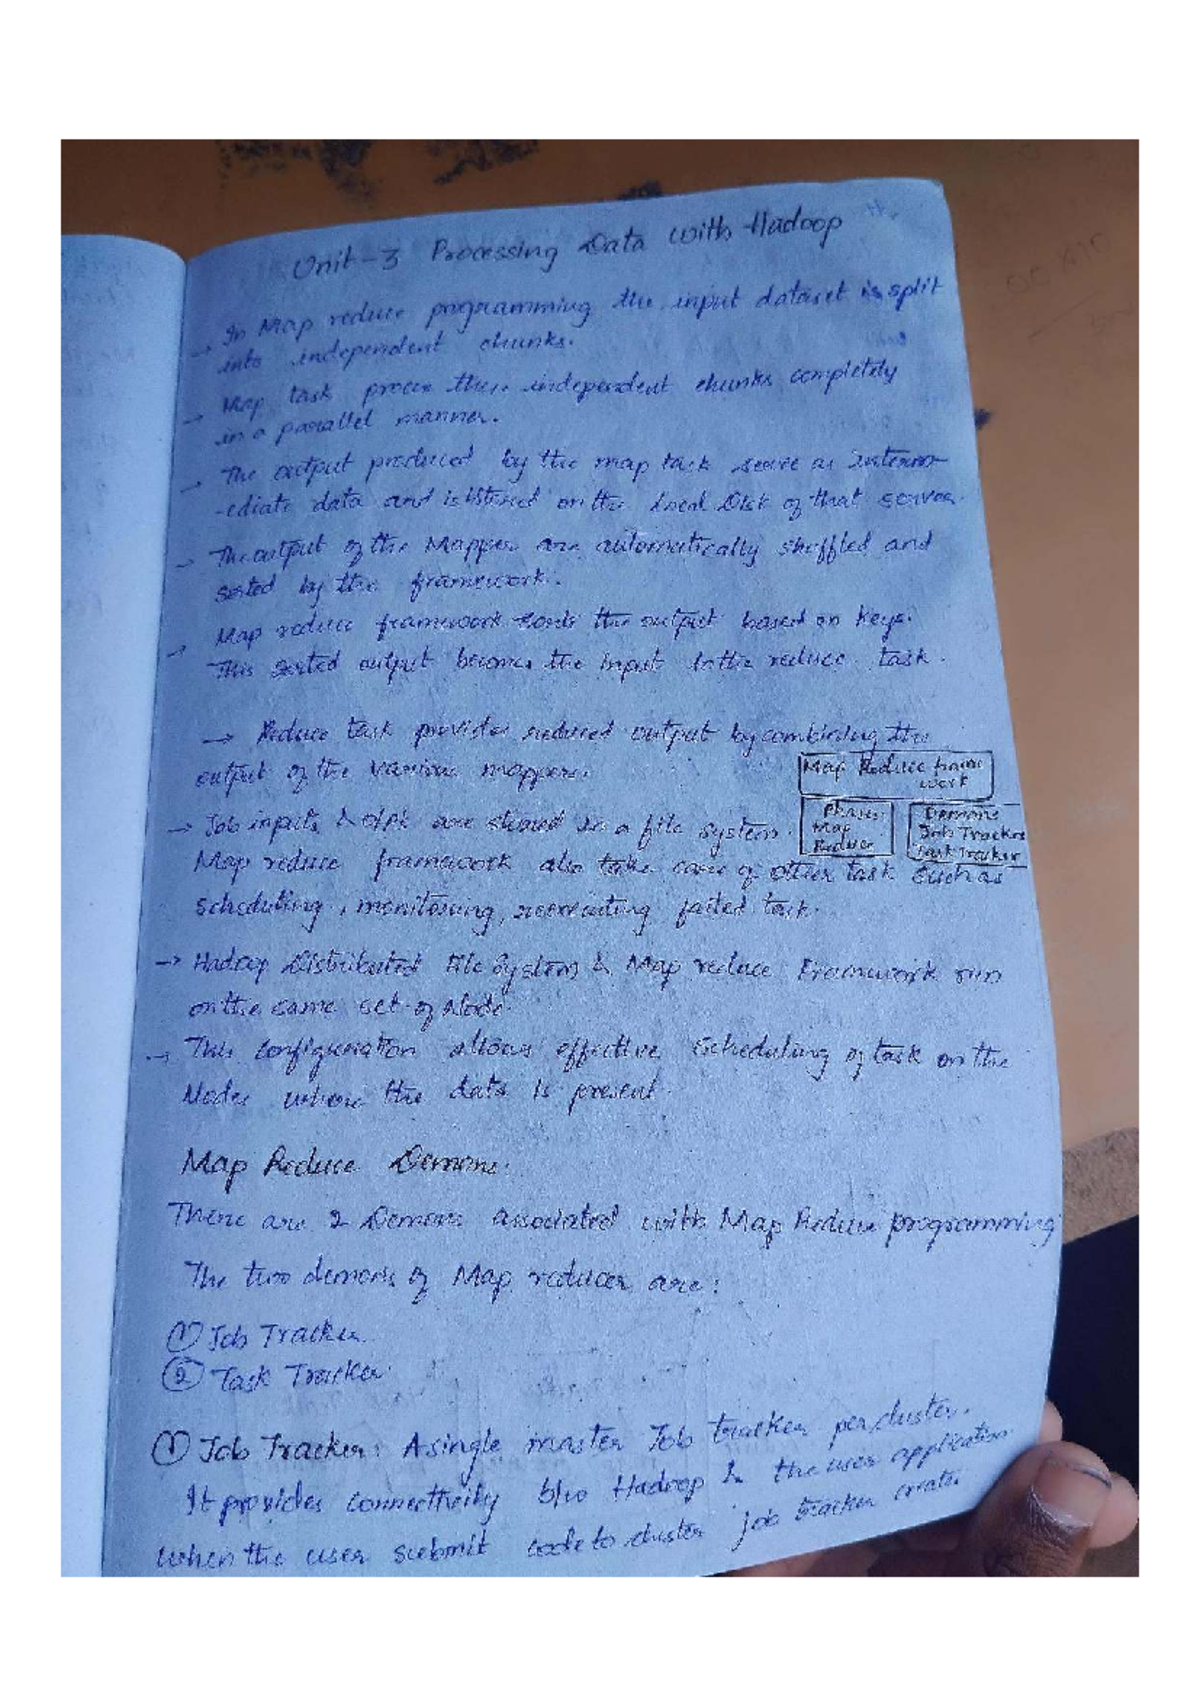 Unit-3 Processing Data with Hadoop
→ In Map reduce programming the input dataset is split
into independent chunks.
→ Map task process these independent chunks completely
in a parallel manner.
→ The output produced by the map task serve as Interm-
-ediate data and is stored on the Local Disk of that server.
→ The output of the Mapper are automatically shuffled and
sorted by the framework.
→ Map reduce framework sorts the output based on keys.
This sorted output becomes the input to the reduce task.
→ Reduce task provides reduced output by combining the
output of the various mappers.
Map Reduce frame
work
Phases
Map
Reduce
Demons
Job Tracker
Task Tracker
→ Job inputs & o/p are stored in a file system.
Map reduce framework also take care of other task such as
scheduling, monitoring, reexecuting failed task.
→ Hadoop Distributed File System & Map reduce Framework run
on the same set of Node.
→ This configuration allows effective scheduling of task on the
Nodes where the data is present.
Map Reduce Demons.
There are 2 Demons associated with Map Reduce programming
The two demons of Map reducer are:
① Job Tracker.
② Task Tracker.
① Job Tracker: A single master Job tracker per cluster.
It provides connectivity b/w Hadoop & the user application
when the user submit code to cluster job tracker creates